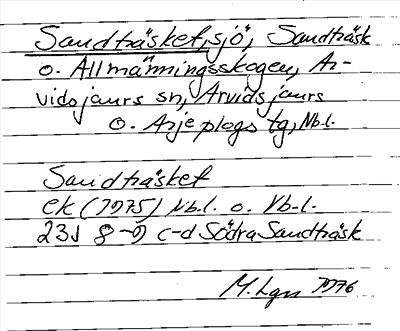 Sandträsket, sjö, Sandträsk
o. Allmänningsskogen, Ar-
vidsjaurs sn, Arvidsjaurs
o. Arjeplogs tg, Nb.l.
Sandträsket
ek (1975) Nb.l. o. Vb.l.
23J 8-9 c-d Södra Sandträsk
M. Lgn 1976